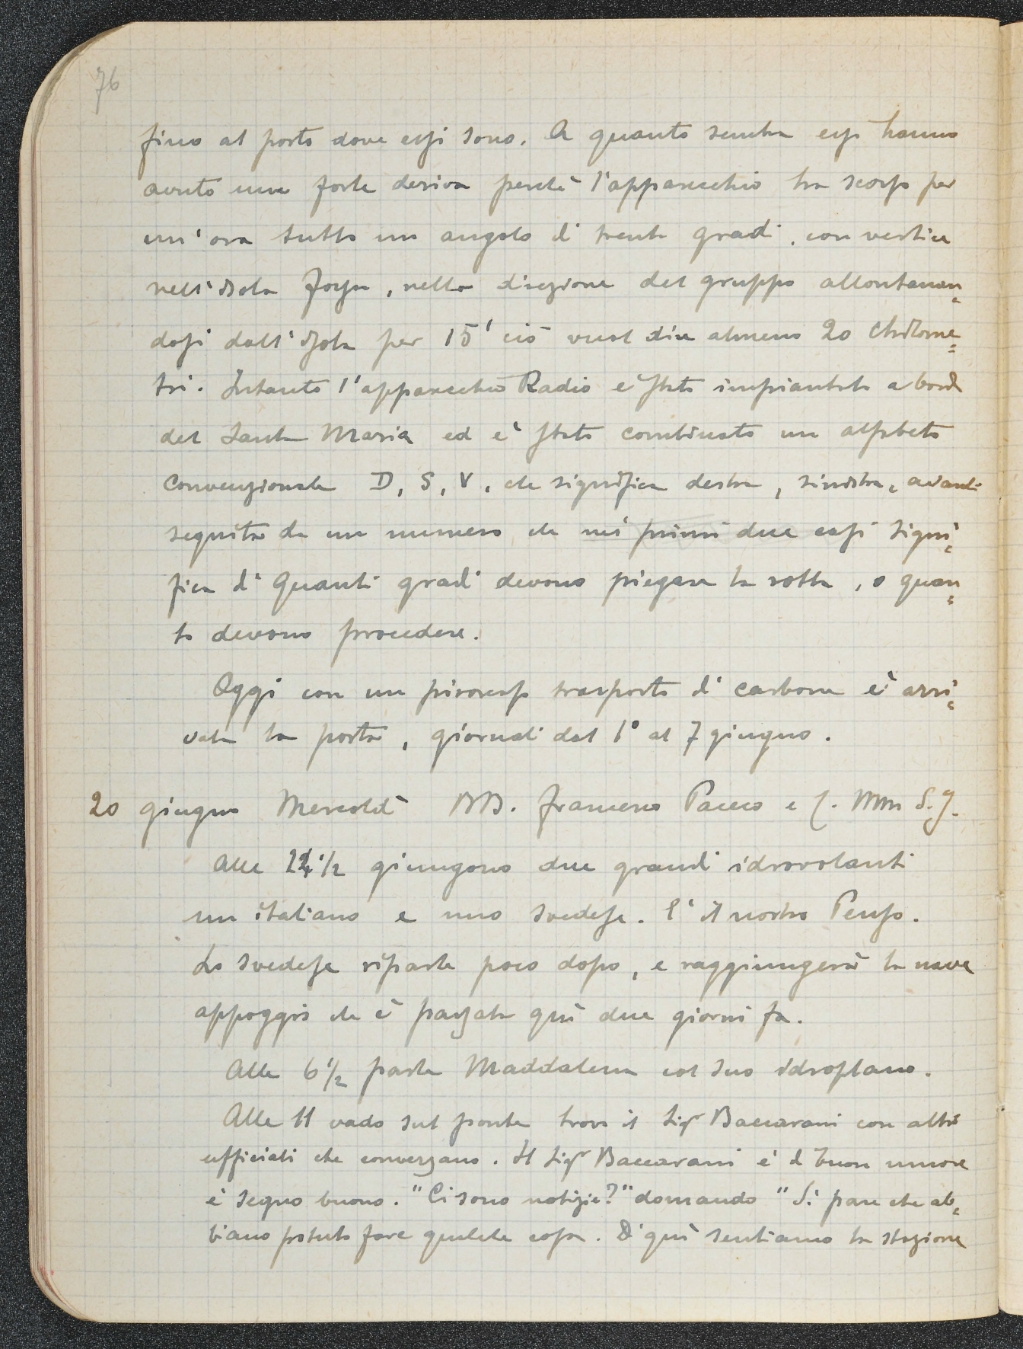 76
fino al posto dove essi sono. A quanto sembra essi hanno
avuto una forte deriva perchè l'apparecchio ha scorso per
un'ora tutto un angolo di trenta gradi, con vertice
nell'isola Foyn, nella direzione del gruppo allontanan=
dosi dall'isola per 15' ciò vuol dire almeno 20 chilome=
tri. Intanto l'apparecchio Radio è stato impiantato a bordo
del Santa Maria ed è stato combinato un alfabeto
convenzionale D, S, V, che significa destra, sinistra, avanti
seguito da un numero che nei primi due casi signi=
fica di quanti gradi devono piegare la rotta, o quan=
to devono procedere.
Oggi con un piroscafo trasporto di carbone è arri=
vata la posta, giornali dal 1° al 7 giugno.
20 giugno Mercoldì BB. Francesco Paceco e C. Mm S.J.
Alle 24½ giungono due grandi idrovolanti
un italiano e uno svedese. E' il nostro Penzo.
Lo svedese riparte poco dopo, e raggiungerà la nave
appoggio che è passata quì due giorni fa.
Alle 6½ parte Maddalena col suo idroplano.
Alle 11 vado sul ponte trovo il Sigr Baccarani con altri
ufficiali che conversano. Il Sigr Baccarani è di buon umore
è segno buono. "Ci sono notizie?" domando "Sì pare che ab=
biano potuto fare qualche cosa. Di quì sentiamo la stazione